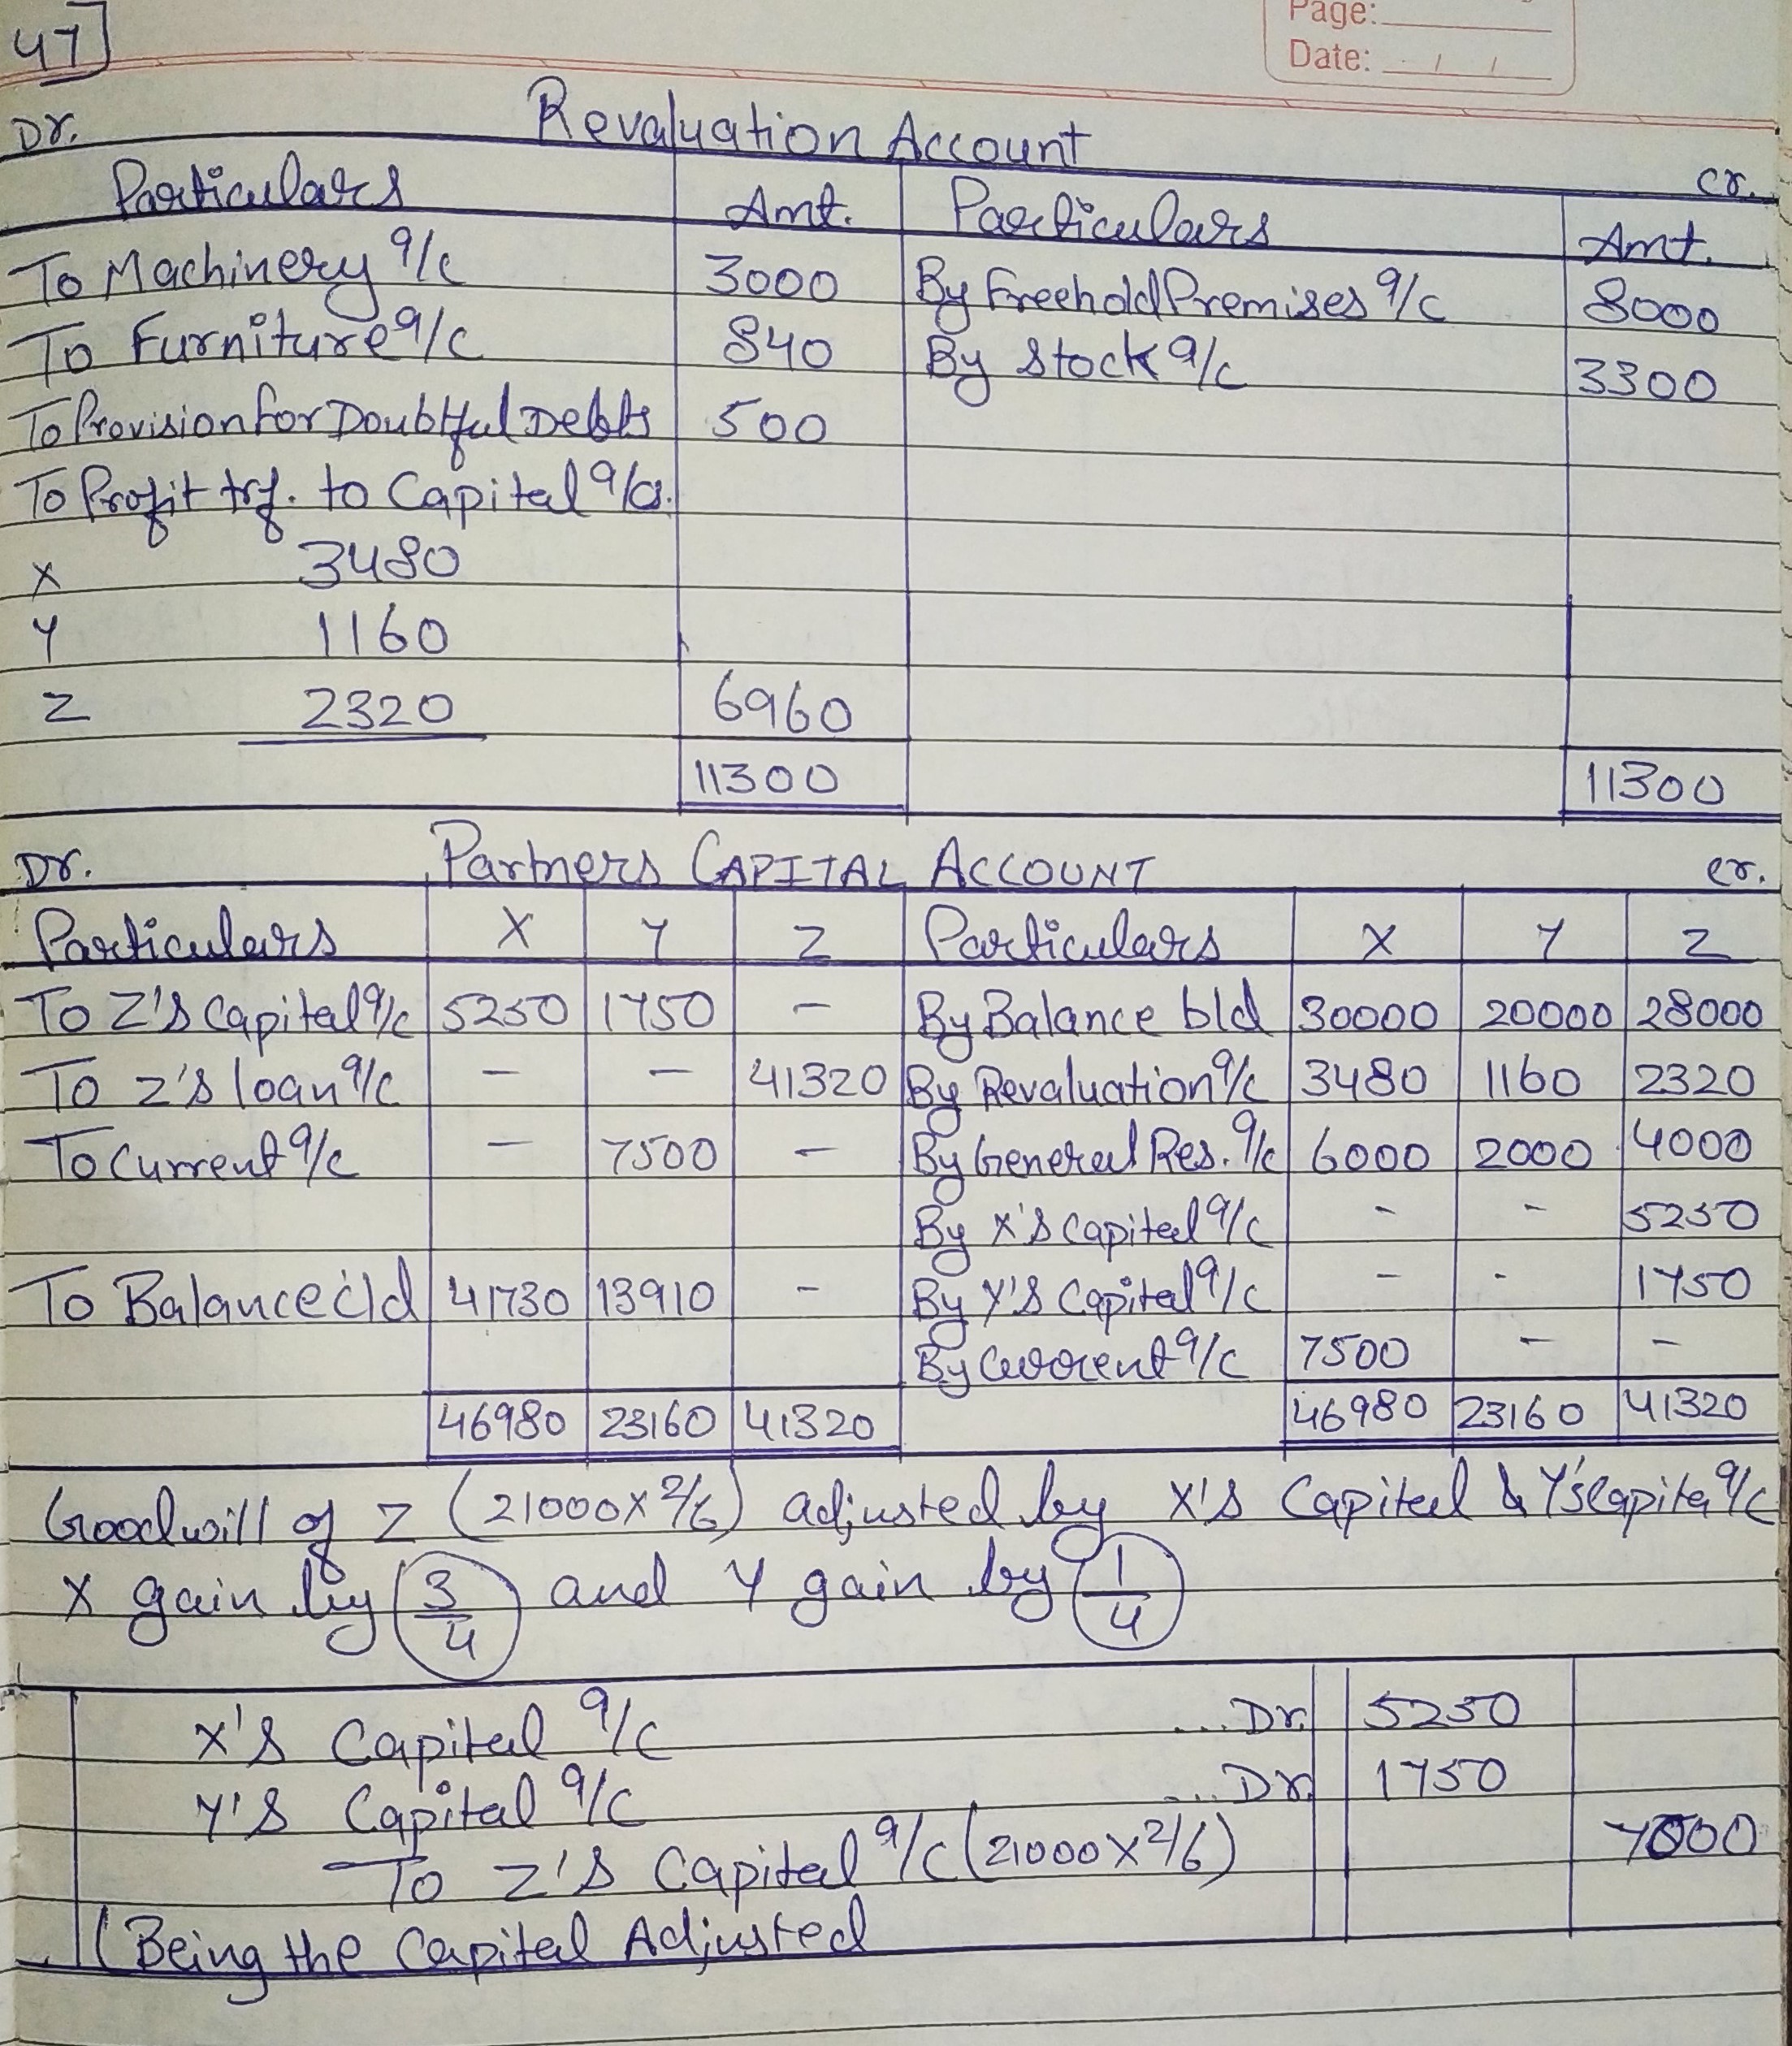 47]
Page:
Date: / /
Dr. Revaluation Account Cr.
Particulars Amt. Particulars Amt.
To Machinery a/c 3000 By Freehold Premises a/c 8000
To Furniture a/c 840 By Stock a/c 3300
To Provision for Doubtful Debts 500
To Profit trf. to Capital a/cs.
X 3480
Y 1160
Z 2320 6960
11300 11300
Dr. Partners CAPITAL ACCOUNT Cr.
Particulars X Y Z Particulars X Y Z
To Z's Capital a/c 5250 1750 - By Balance b/d 30000 20000 28000
To Z's loan a/c - - 41320 By Revaluation a/c 3480 1160 2320
To Current a/c - 7500 - By General Res. a/c 6000 2000 4000
By X's Capital a/c - - 5250
To Balance c/d 41730 13910 - By Y's Capital a/c - - 1750
By Current a/c 7500 - -
46980 23160 41320 46980 23160 41320
Goodwill of Z (21000×2/6) adjusted by X's Capital & Y's Capital a/c
X gain by 3/4 and Y gain by 1/4
X's Capital a/c ...Dr. 5250
Y's Capital a/c ...Dr. 1750
To Z's Capital a/c (21000×2/6) 7000
(Being the Capital Adjusted